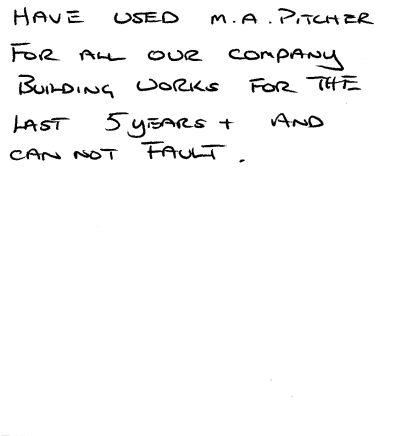 HAVE USED M.A. PITCHER
FOR ALL OUR COMPANY
BUILDING WORKS FOR THE
LAST 5 YEARS + AND
CAN NOT FAULT.